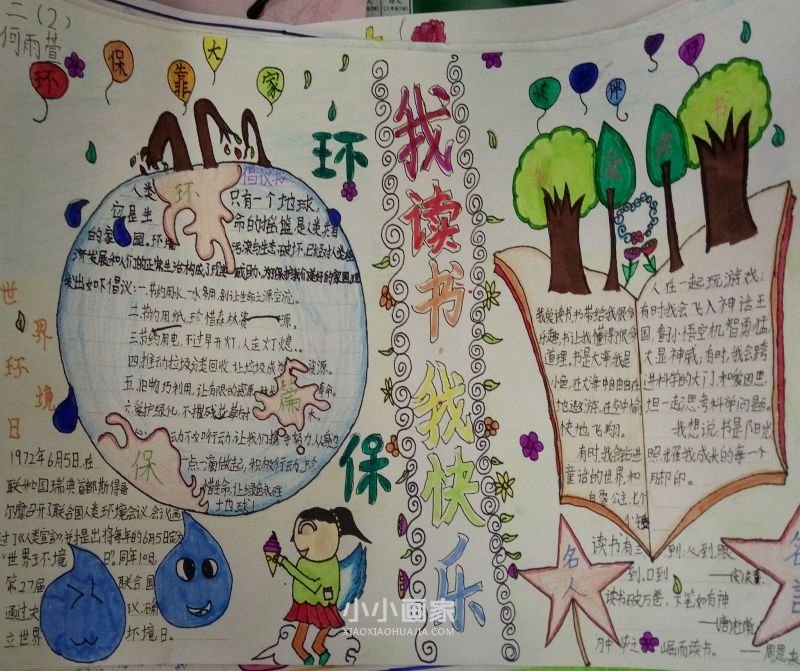 二(2)
何雨萱
环保靠大家
世界环境日
环
保
倡议书
人类只有一个地球,
它是生命的摇篮,是人类共有
的家园。环
发出如下倡议:一.节约用水,一水多用,别让生命之源空流。
二.节约用纸,珍惜森林资源。
三.节约用电,不过早开灯,人走灯熄。
四.推动垃圾分类回收,让垃圾成为资源。
五.旧物巧利用,让有限的资源
六.爱护绿化,不攀
心动不如行动,让我们携手努力,从
一点一滴做起,积极行动,珍
惜生命,让绿色永驻
地球!
环
保
篇
1972年6月5日,在
联合国瑞典首都斯得哥
尔摩召开了联合国人类环境会议,会议通
过了《人类宣言》,并提出将每年的6月5日定为
“世界环境日”。同年10月,
第27届联合国
通过决议
立世界环境日。
我读书·我快乐
书
我爱读书,书带给我很多
乐趣,书让我懂得很多
道理。书是大海,我是
小鱼,在大海中自由自在
地遨游,在空中愉
快地飞翔。
有时我会走进
童话的世界,和
白雪公主,七个
小矮
人在一起玩游戏;
有时我会飞入神话王
国,看小孙悟空机智勇猛,
大显神威;有时,我会跨
进科学的大门,和爱因思
坦一起思考科学问题。
我想说:书是阳光
照光深我成长的每一个
脚印。
名人
名言
读书有三到,心到,眼
到,口到 ——(宋)朱熹
读书破万卷,下笔如有神
——(唐)杜甫
为中华之崛起而读书。——周恩来
小小画家
XIAOXIAOHUAJIA.COM